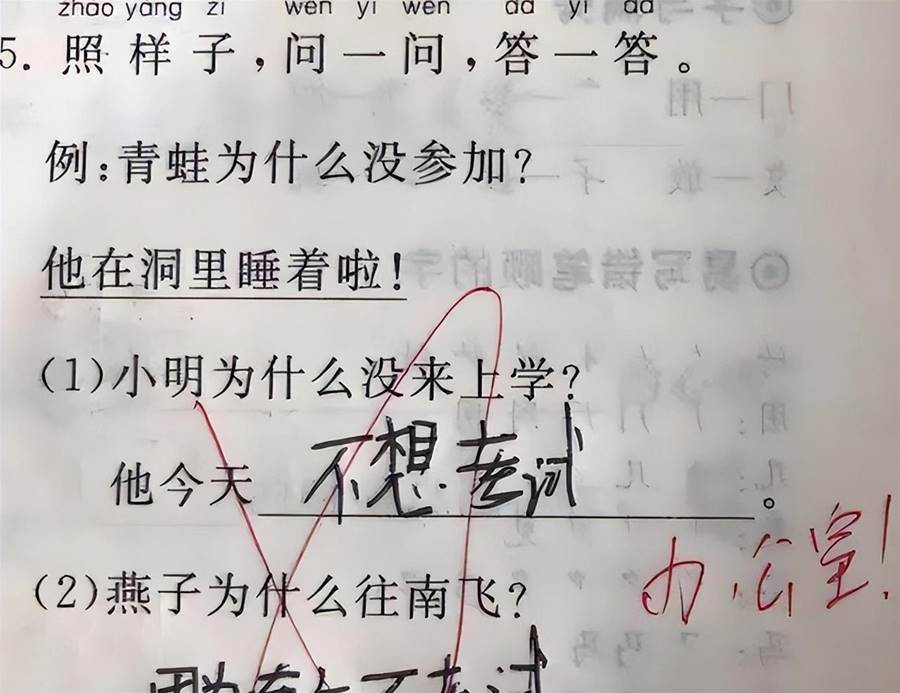 zhào yàng zi wèn yi wèn dá yi dá
5. 照样子，问一问，答一答。
例：青蛙为什么没参加？
他在洞里睡着啦！
（1）小明为什么没来上学？
他今天 不想考试。
办公室！
（2）燕子为什么往南飞？
因为南方不考试